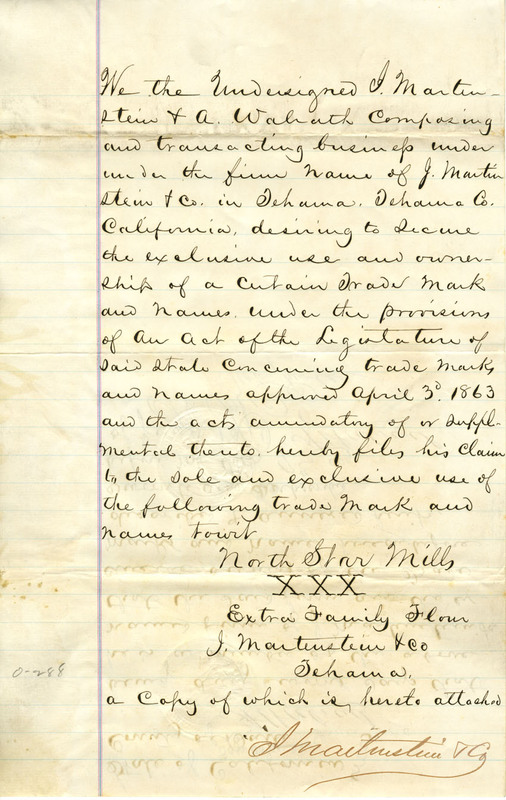 We the Undersigned J. Marten-
stein & A. Walrath Composing
and transacting business under
under the firm name of J. Martin
stein & Co. in Tehama, Tehama Co.
California, desiring to secure
the exclusive use and owner-
ship of a certain Trade Mark
and Names. under the provisions
of An Act of the Legislature of
said state Concerning trade marks
and names approved April 3d. 1863
and the acts amendatory of or suppl-
mental thereto. hereby files his Claim
to the sole and exclusive use of
the following trade Mark and
names towit
North Star Mills
XXX
Extra Family Flour
J. Martenstein & co
Tehama,
a Copy of which is hereto attached
J Martenstein & Co
0-288